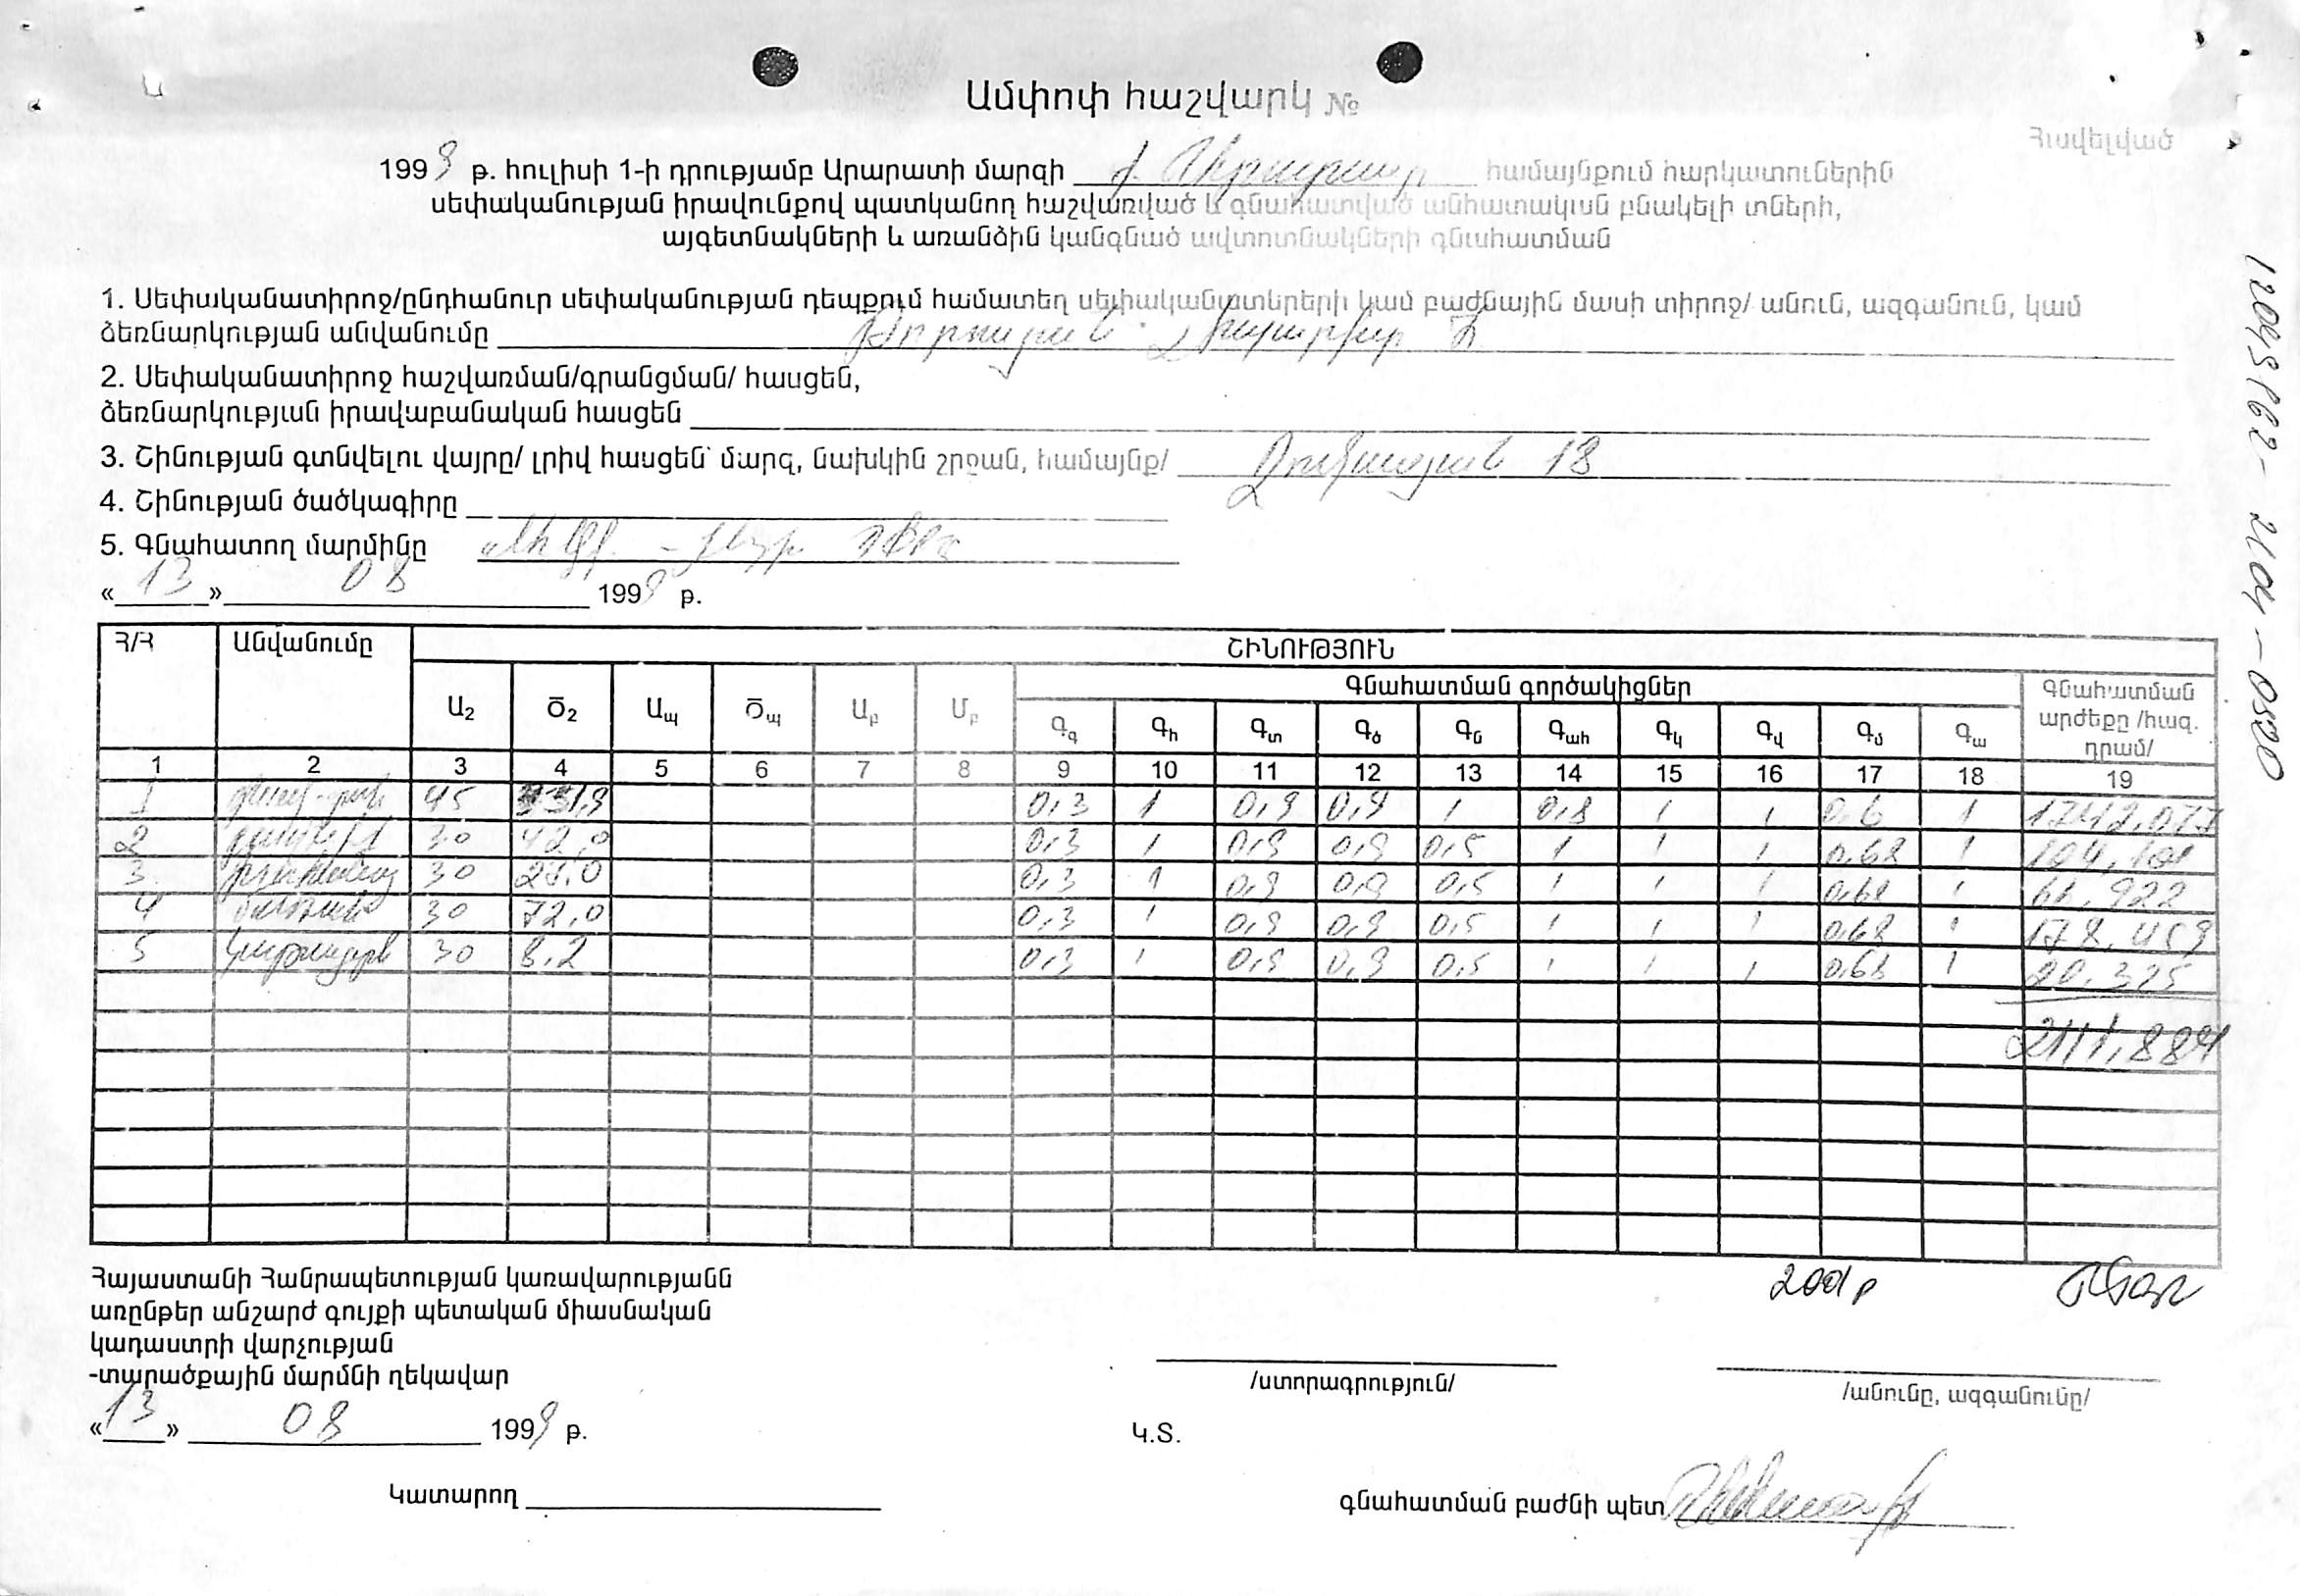 Ամփոփ հաշվարկ №
Հավելված
1999 թ. հուլիսի 1-ի դրությամբ Արարատի մարզի համայնքում հարկատուներին
սեփականության իրավունքով պատկանող հաշվառված և գնահատված անհատական բնակելի տների,
այգետնակների և առանձին կանգնած ավտոտնակների գնահատման
1. Սեփականատիրոջ/ընդհանուր սեփականության դեպքում համատեղ սեփականատերերի կամ բաժնային մասի տիրոջ/ անուն, ազգանուն, կամ
ձեռնարկության անվանումը
2. Սեփականատիրոջ հաշվառման/գրանցման/ հասցեն,
ձեռնարկության իրավաբանական հասցեն
3. Շինության գտնվելու վայրը/ լրիվ հասցեն՝ մարզ, նախկին շրջան, համայնք/ Չուխաջյան 18
4. Շինության ծածկագիրը
5. Գնահատող մարմինը
«13» 08 1999 թ.
Հ/Հ Անվանումը ՇԻՆՈՒԹՅՈՒՆ
Գնահատման գործակիցներ Գնահատման արժեքը /հազ. դրամ/
Ա2 Ծ2 Ապ Ծպ Աբ Մբ Գգ Գի Գտ Գծ Գն Գահ Գկ Գվ Գմ Գա
1 2 3 4 5 6 7 8 9 10 11 12 13 14 15 16 17 18 19
1 45 0,3 1 0,9 0,9 1 0,8 1 1 0,6 1 1742,077
2 30 42,0 0,3 1 0,9 0,9 0,5 1 1 1 0,68 1 104,101
3 30 27,0 0,3 1 0,9 0,9 0,5 1 1 1 0,68 1 66,922
4 30 72,0 0,3 1 0,9 0,9 0,5 1 1 1 0,68 1 178,459
5 30 8,2 0,3 1 0,9 0,9 0,5 1 1 1 0,68 1 20,325
2111,884
Հայաստանի Հանրապետության կառավարությանն
առընթեր անշարժ գույքի պետական միասնական
կադաստրի վարչության
-տարածքային մարմնի ղեկավար
2001թ
/ստորագրություն/
/անունը, ազգանունը/
«13» 08 1999 թ.
Կ.Տ.
Կատարող
գնահատման բաժնի պետ